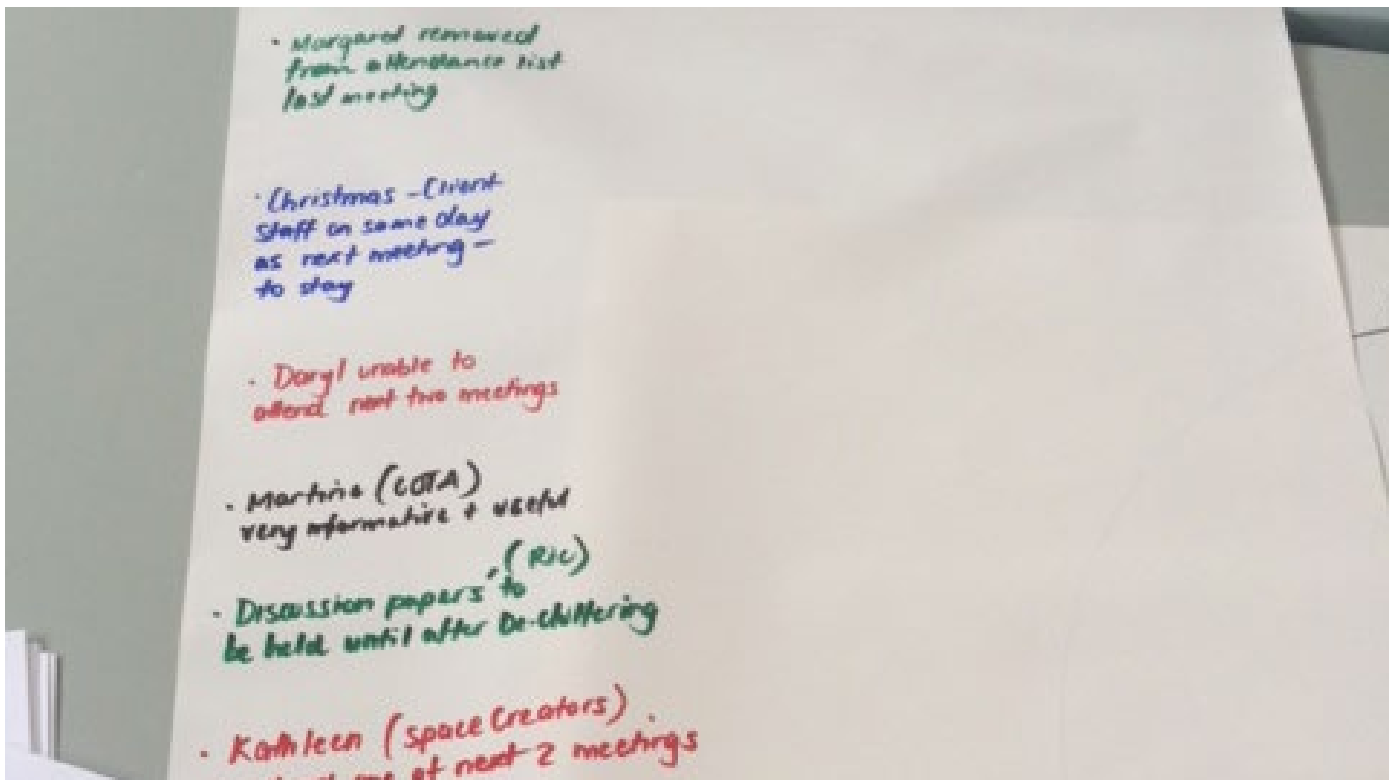 · Margaret removed
from attendance list
last meeting
· Christmas - Client
Staff on same day
as next meeting -
to stay
· Daryl unable to
attend next two meetings
· Martina (COTA)
very informative + useful
(RIC)
· Discussion papers to
be held until after De-cluttering
· Kathleen (Space Creators)
one of next 2 meetings